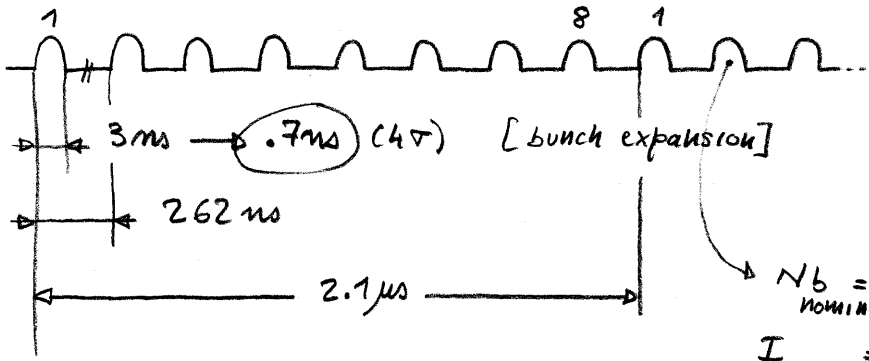 1 8 1
3 ns .7ns (4σ) [bunch expansion]
262 ns
2.1 μs
Nb =
I =